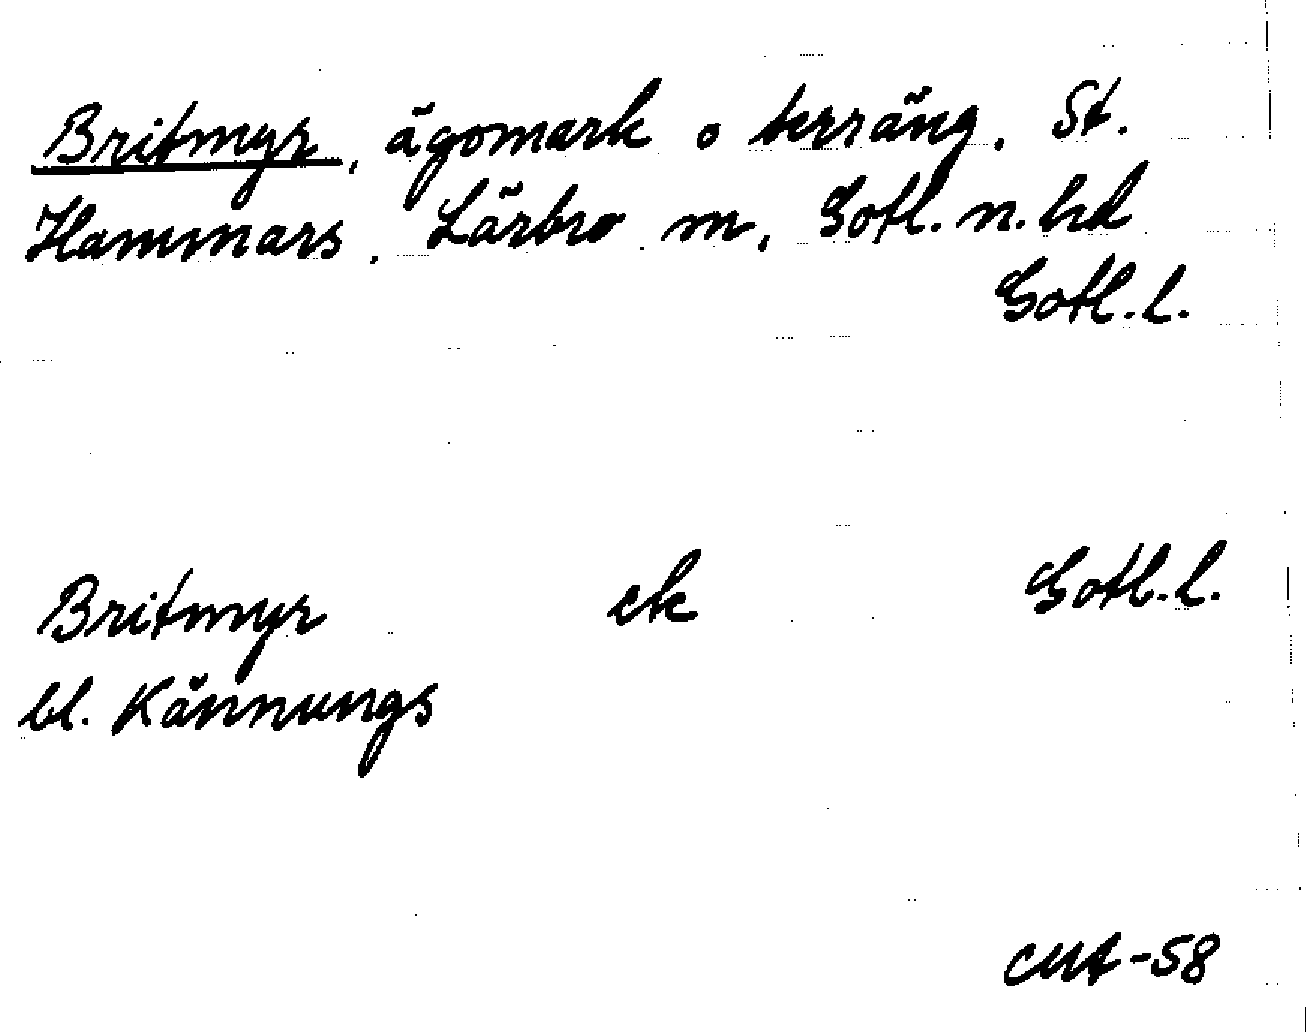 Britmyr, ägomark o terräng. St.
Hammars. Lärbro m, Gotl. n. hd
Gotl. l.
Britmyr ek Gotl. l.
bl. Kännungs
CMA-58